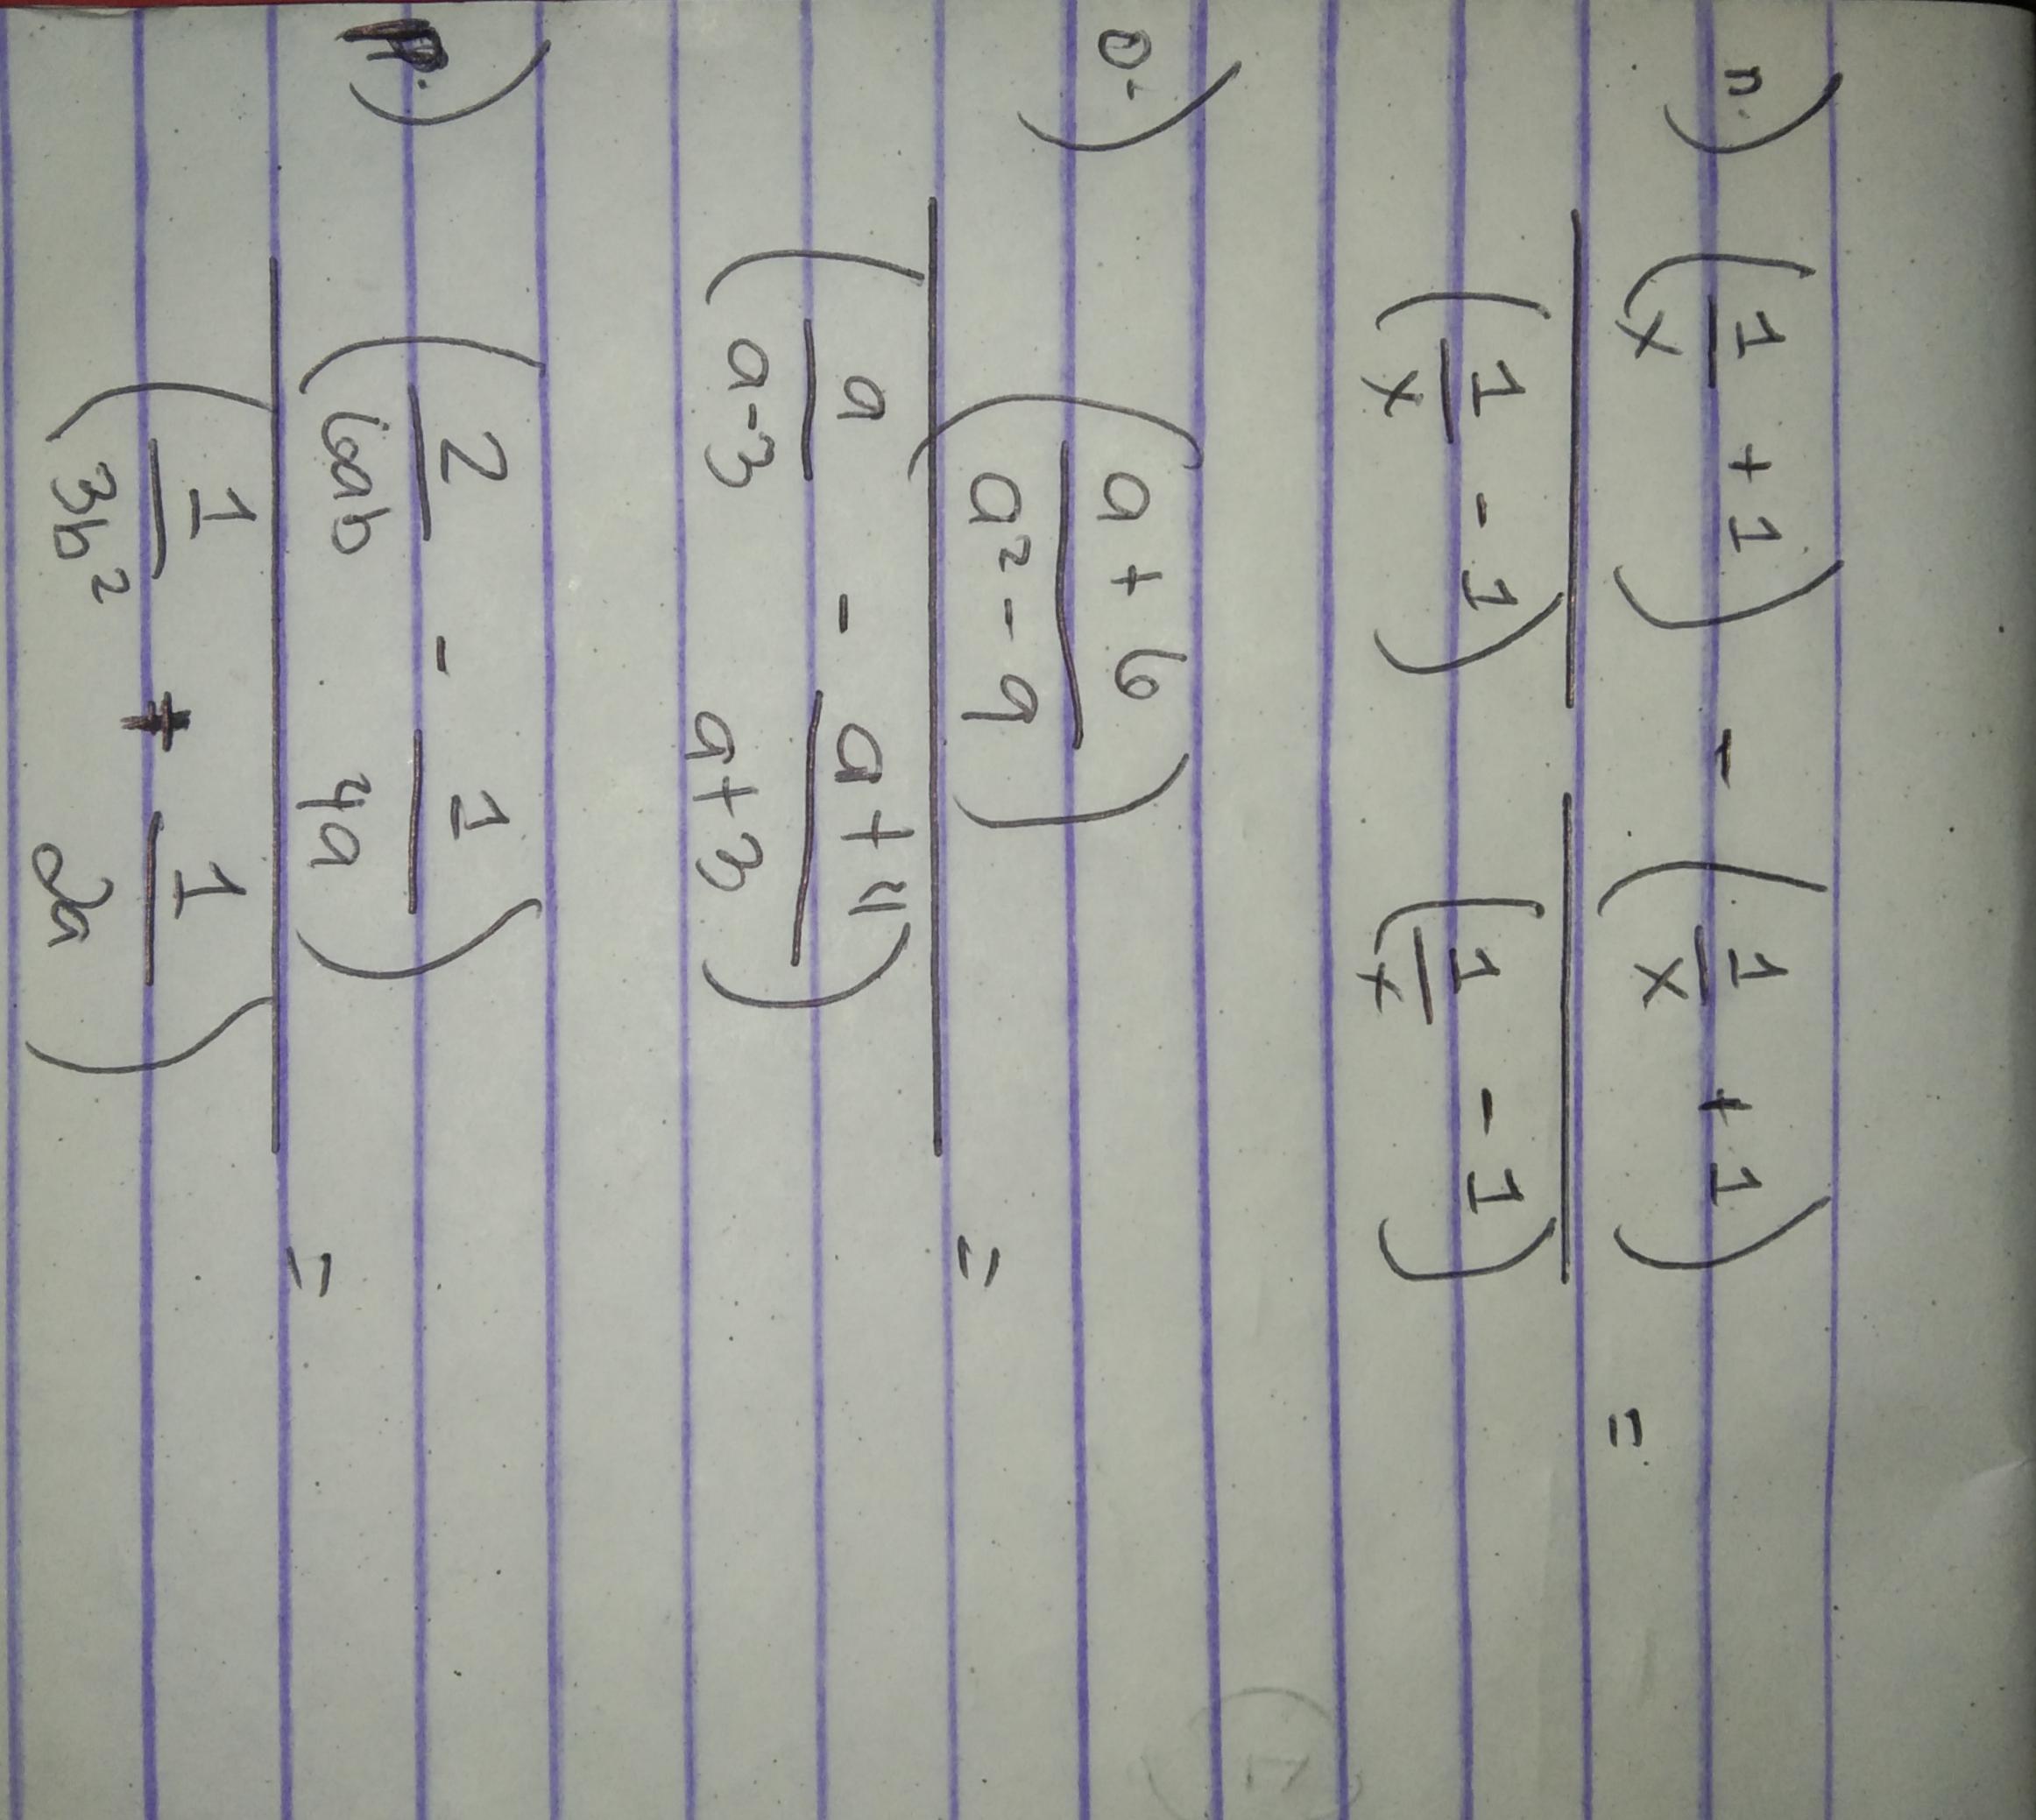 n.) (1/x + 1) - (1/x + 1)
(1/x - 1) (1/x - 1) =
o.) (a + 6 / a² - 9)
(a / a-3 - a+4 / a+3) =
p.) (2 / 6ab - 1 / 4a)
(1 / 3b² + 1 / 2a) =